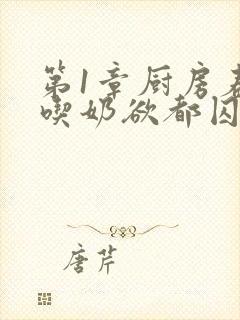 第1章厨房
喫奶欲都囚
唐芹